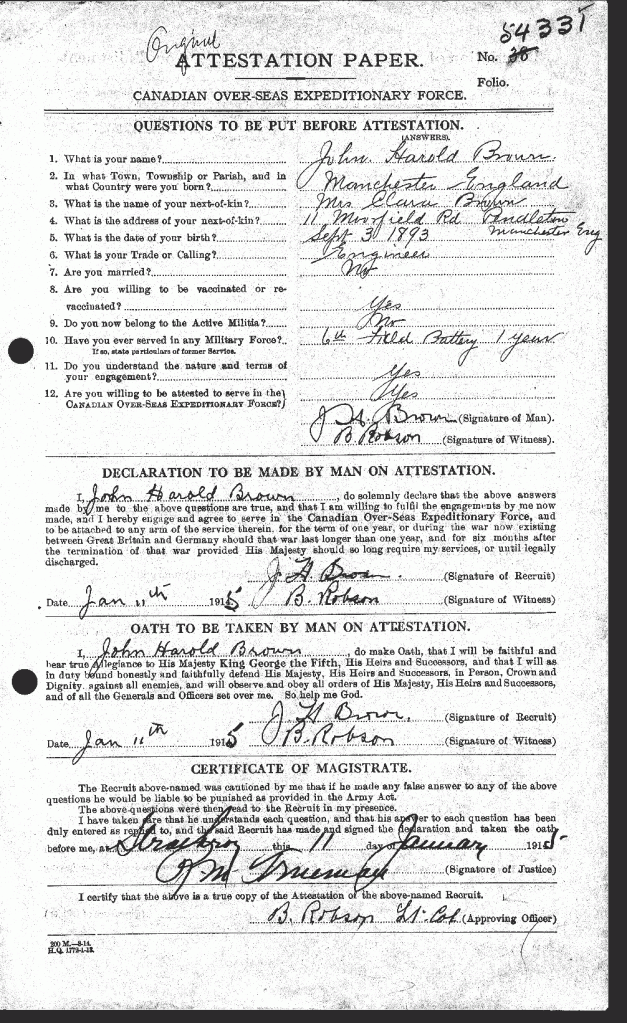 Original
54335
ATTESTATION PAPER.
No. 38
Folio.
CANADIAN OVER-SEAS EXPEDITIONARY FORCE.
QUESTIONS TO BE PUT BEFORE ATTESTATION.
(ANSWERS).
1. What is your name? John Harold Brown
2. In what Town, Township or Parish, and in
what Country were you born? Manchester England
3. What is the name of your next-of-kin? Mrs Clara Brown
4. What is the address of your next-of-kin? 11 Moorfield Rd Pendleton
Manchester Eng
5. What is the date of your birth? Sept 3 1893
6. What is your Trade or Calling? Engineer
7. Are you married? No
8. Are you willing to be vaccinated or re-
vaccinated? Yes
9. Do you now belong to the Active Militia? No
10. Have you ever served in any Military Force? 6th Field Battery 1 year
If so, state particulars of former Service.
11. Do you understand the nature and terms of
your engagement? Yes
12. Are you willing to be attested to serve in the
CANADIAN OVER-SEAS EXPEDITIONARY FORCE? Yes
J. H. Brown (Signature of Man).
B. Robson (Signature of Witness).
DECLARATION TO BE MADE BY MAN ON ATTESTATION.
I, John Harold Brown, do solemnly declare that the above answers
made by me to the above questions are true, and that I am willing to fulfil the engagements by me now
made, and I hereby engage and agree to serve in the Canadian Over-Seas Expeditionary Force, and
to be attached to any arm of the service therein, for the term of one year, or during the war now existing
between Great Britain and Germany should that war last longer than one year, and for six months after
the termination of that war provided His Majesty should so long require my services, or until legally
discharged.
J. H. Brown. (Signature of Recruit)
Date Jan 11th 1915 B. Robson (Signature of Witness)
OATH TO BE TAKEN BY MAN ON ATTESTATION.
I, John Harold Brown, do make Oath, that I will be faithful and
bear true Allegiance to His Majesty King George the Fifth, His Heirs and Successors, and that I will as
in duty bound honestly and faithfully defend His Majesty, His Heirs and Successors, in Person, Crown and
Dignity, against all enemies, and will observe and obey all orders of His Majesty, His Heirs and Successors,
and of all the Generals and Officers set over me. So help me God.
J. H. Brown. (Signature of Recruit)
Date Jan 11th 1915 B. Robson (Signature of Witness)
CERTIFICATE OF MAGISTRATE.
The Recruit above-named was cautioned by me that if he made any false answer to any of the above
questions he would be liable to be punished as provided in the Army Act.
The above questions were then read to the Recruit in my presence.
I have taken care that he understands each question, and that his answer to each question has been
duly entered as replied to, and the said Recruit has made and signed the declaration and taken the oath
before me, at Strathroy this 11 day of January 1915
(Signature of Justice)
I certify that the above is a true copy of the Attestation of the above-named Recruit.
B. Robson Lt. Col (Approving Officer)
200 M.—8-14.
H.Q. 1772-1-13.